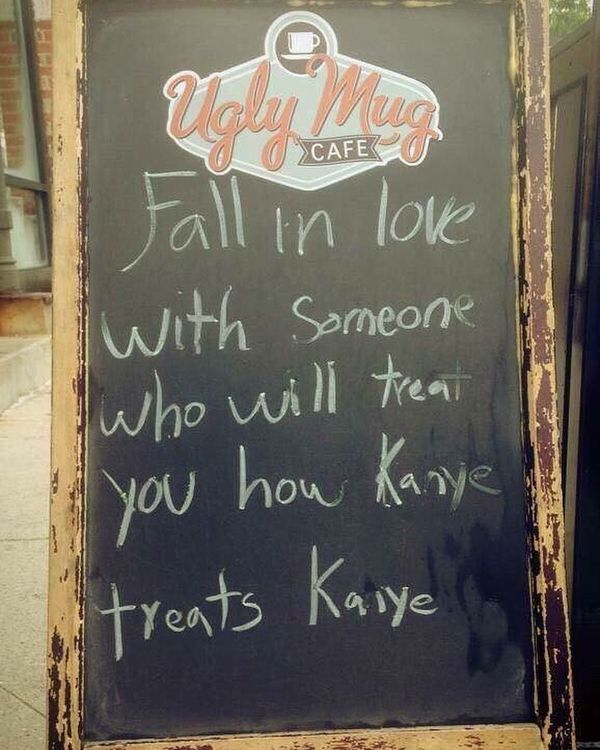 Ugly Mug
CAFE
Fall in love
with Someone
who will treat
you how Kanye
treats Kanye